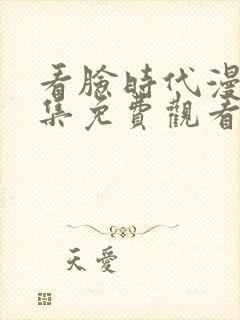 看臉時代漫
集免費觀看
天愛